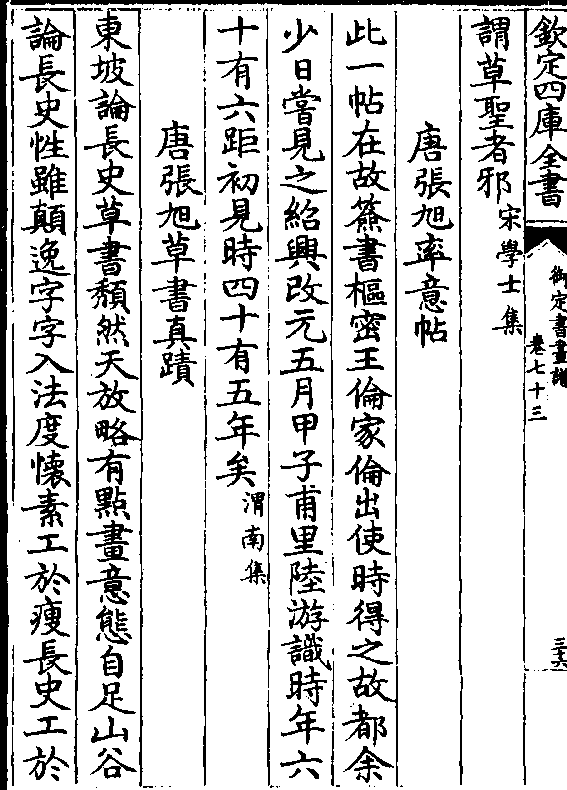 欽定四庫全書
御定書畫譜
卷七十三
三六
謂草聖者邪 宋學士集
唐張旭率意帖
此一帖在故簽書樞密王倫家倫出使時得之故都余
少日嘗見之紹興改元五月甲子甫里陸游識時年六
十有六距初見時四十有五年矣 渭南集
唐張旭草書真蹟
東坡論長史草書頹然天放略有點畫意態自足山谷
論長史性雖顛逸字字入法度懷素工於瘦長史工於